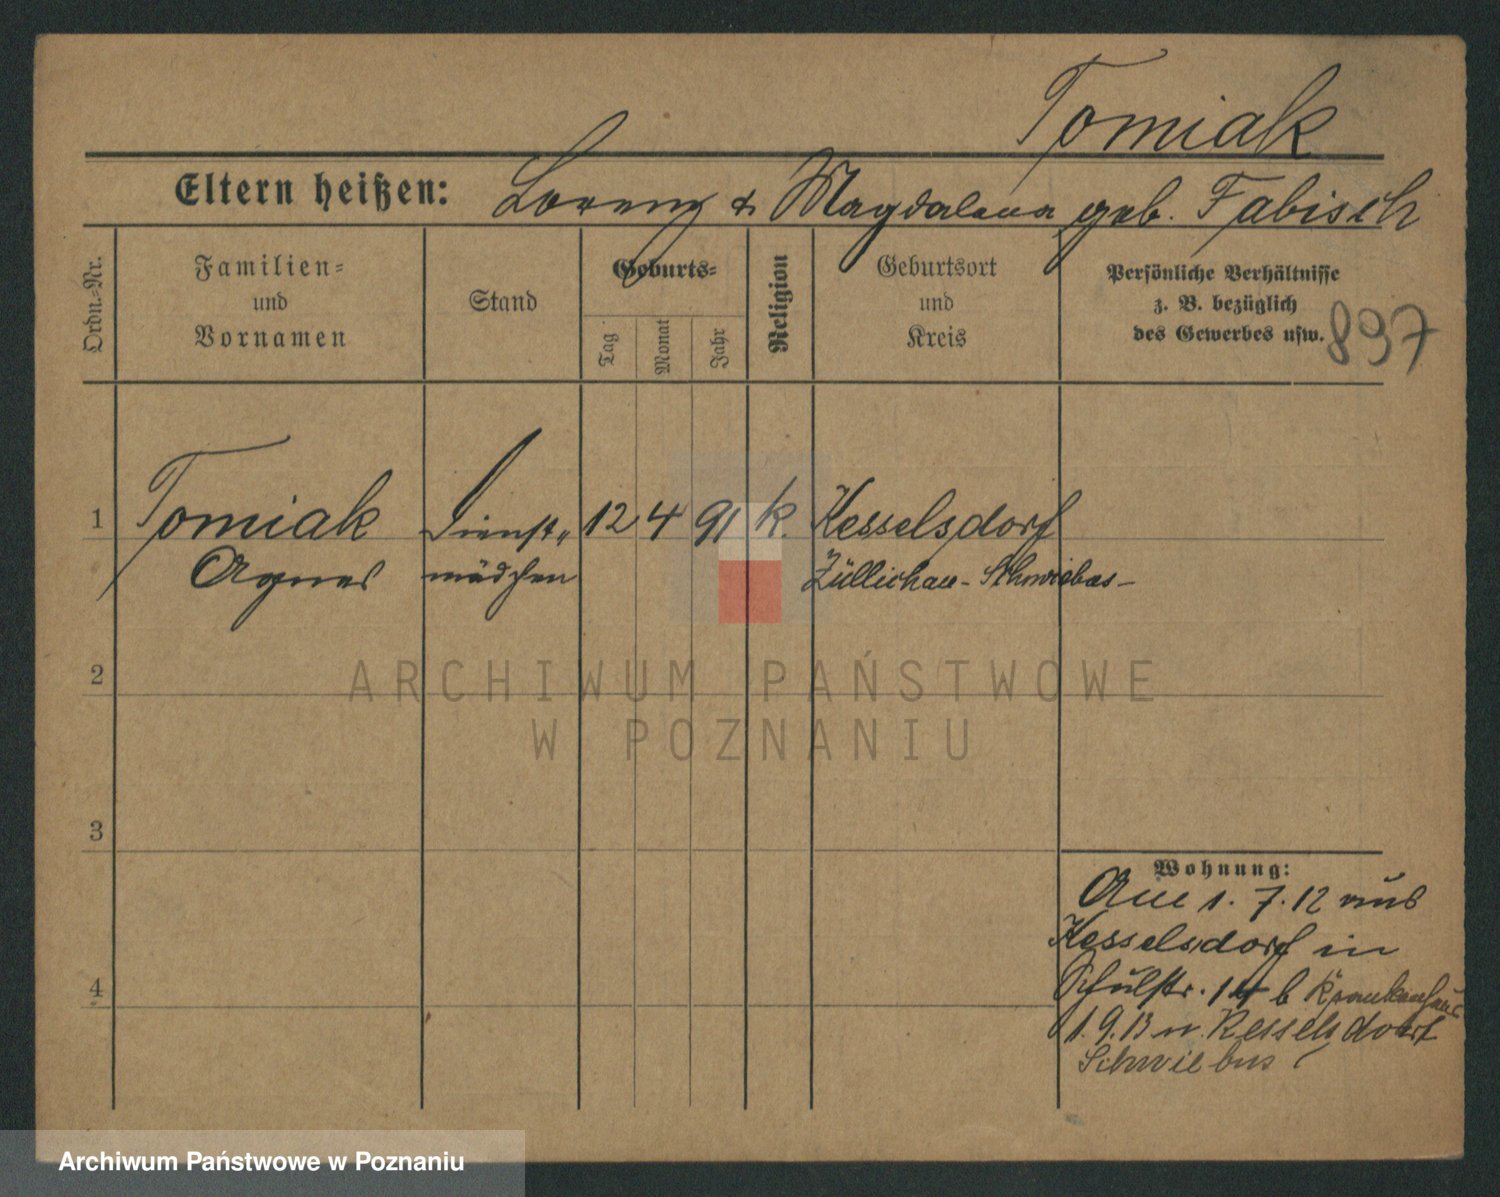 Tomiak
Eltern heißen: Lorenz & Magdalena geb. Fabisch
Ordn.-Nr.
Familien-
und
Vornamen
Stand
Geburts-
Tag
Monat
Jahr
Religion
Geburtsort
und
Kreis
Persönliche Verhältnisse
z. B. bezüglich
des Gewerbes usw.
897
1 Tomiak Dienst- 12 4 91 k. Kesselsdorf
Agnes mädchen Züllichau-Schwiebus-
ARCHIWUM PAŃSTWOWE
W POZNANIU
2
3
4
Wohnung:
Am 1. 7. 12 aus
Kesselsdorf in
Schulstr. 14 b Krankenhaus
1. 9. 13 n. Kesselsdorf
Schwiebus
Archiwum Państwowe w Poznaniu